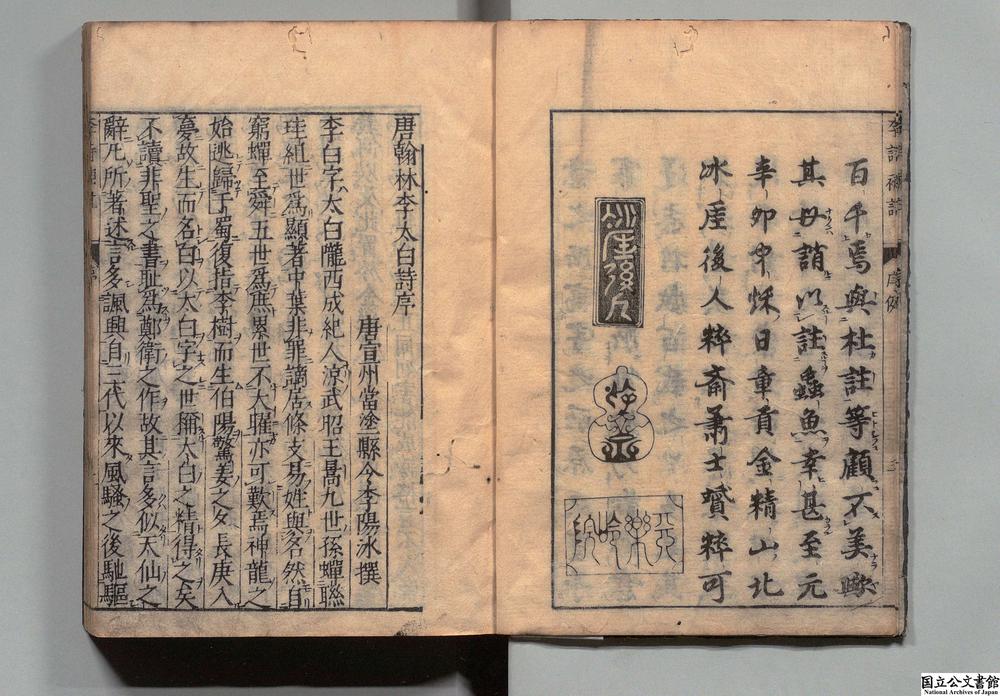 李詩補註 序例
百千焉與杜註等顧不美歟
其毋誚以註蟲魚幸甚至元
辛卯中秋日章貢金精山北
冰厓後人粹齋蕭士贇粹可
冰厓後人
唐翰林李太白詩序
唐宣州當塗縣令李陽冰撰
李白字太白隴西成紀人涼武昭王暠九世孫蟬聯
珪組世爲顯著中葉非罪謫居條支易姓與名然自
窮蟬至舜五世爲庶累世不大曜亦可歎焉神龍之
始逃歸于蜀復指李樹而生伯陽驚姜之夕長庚入
夢故生而名白以太白字之世稱太白之精得之矣
不讀非聖之書恥爲鄭衛之作故其言多似天仙之
辭凡所著述言多諷興自三代以來風騷之後馳驅
国立公文書館
National Archives of Japan